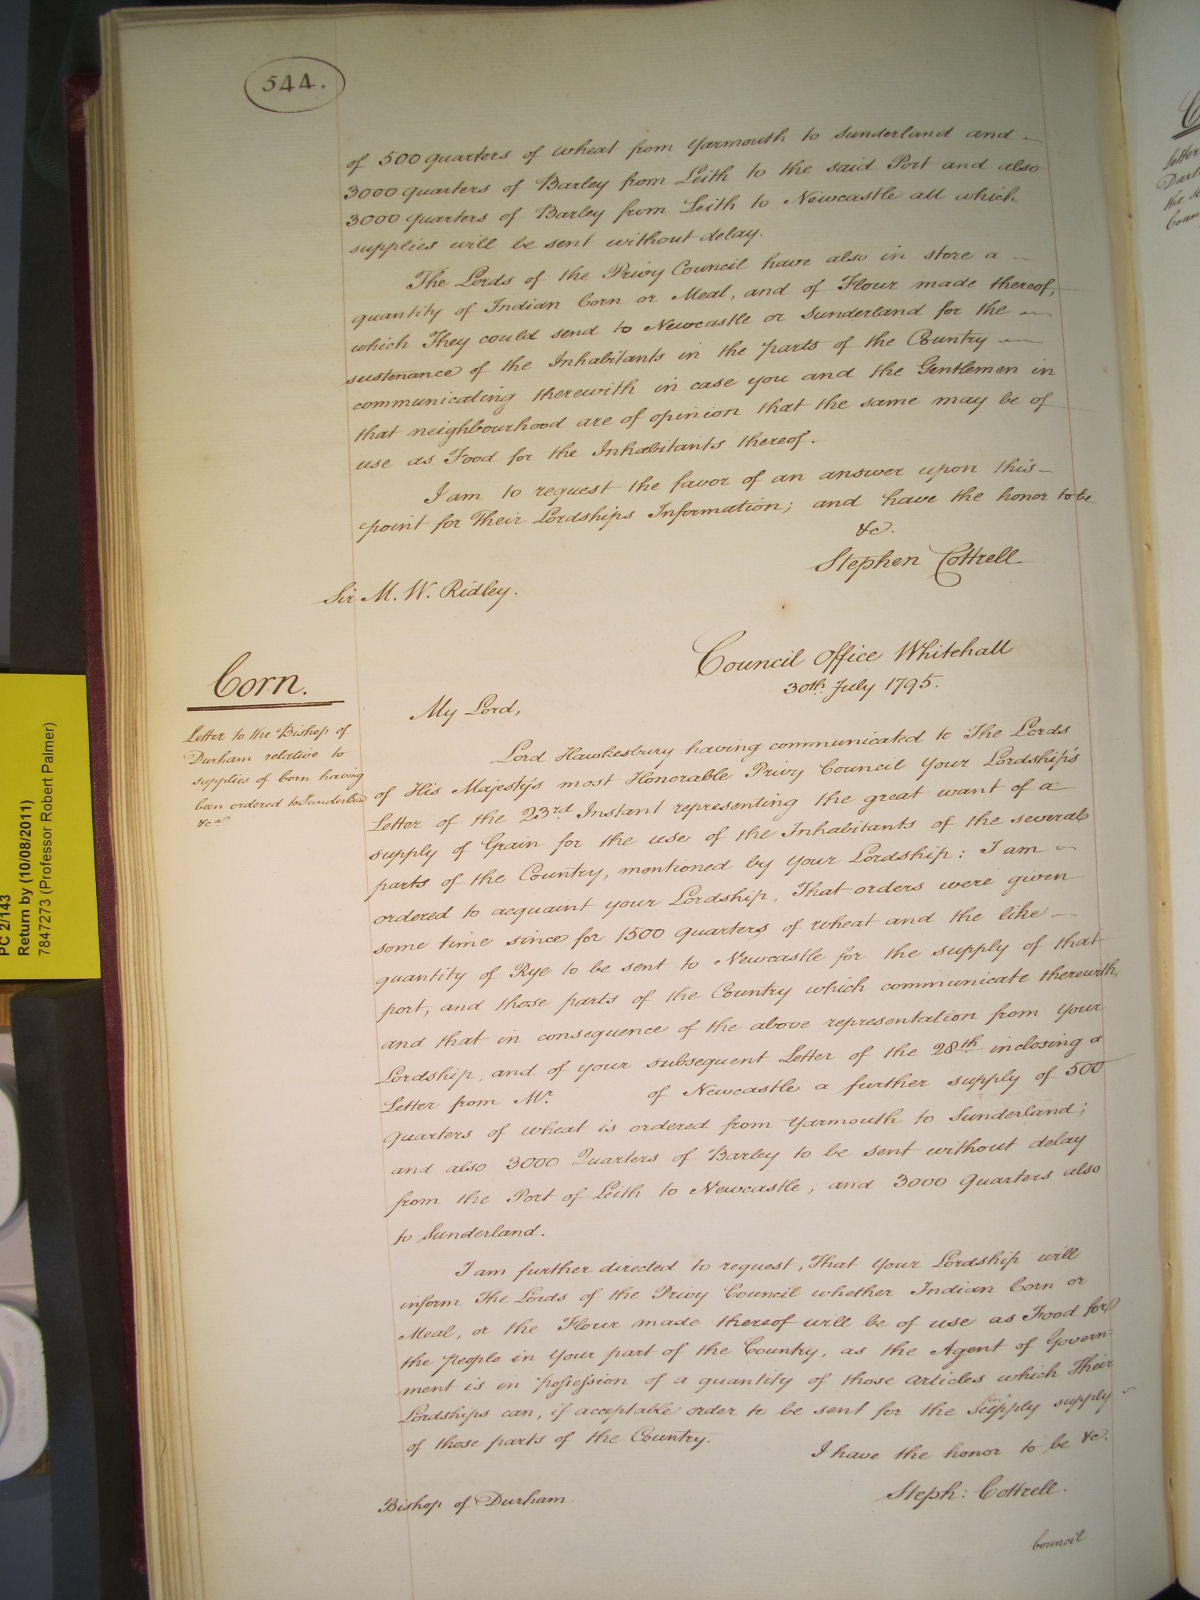 544.
of 500 quarters of wheat from Yarmouth to Sunderland and
3000 quarters of Barley from Leith to the said Port and also
3000 quarters of Barley from Leith to Newcastle all which
supplies will be sent without delay.
The Lords of the Privy Council have also in store a
quantity of Indian Corn or Meal, and of Flour made thereof,
which They could send to Newcastle or Sunderland for the
sustenance of the Inhabitants in the parts of the Country
communicating therewith in case you and the Gentlemen in
that neighbourhood are of opinion that the same may be of
use as Food for the Inhabitants thereof.
I am to request the favor of an answer upon this
point for Their Lordships Information; and have the honor to be
&c.
Stephen Cottrell
Sir M. W. Ridley.
Corn.
Letter to the Bishop of
Durham relative to
supplies of Corn having
been ordered to Sunderland
&ca
Council Office Whitehall
30th. July 1795.
My Lord,
Lord Hawkesbury having communicated to The Lords
of His Majesty's most Honorable Privy Council Your Lordship's
Letter of the 23rd Instant representing the great want of a
supply of Grain for the use of the Inhabitants of the several
parts of the Country, mentioned by Your Lordship: I am
ordered to acquaint your Lordship, That orders were given
some time since for 1500 quarters of wheat and the like
quantity of Rye to be sent to Newcastle for the supply of that
port, and those parts of the Country which communicate therewith,
and that in consequence of the above representation from Your
Lordship, and of your subsequent Letter of the 28th inclosing a
Letter from Mr. of Newcastle a further supply of 500
quarters of wheat is ordered from Yarmouth to Sunderland;
and also 3000 Quarters of Barley to be sent without delay
from the Port of Leith to Newcastle, and 3000 quarters also
to Sunderland.
I am further directed to request, That Your Lordship will
inform The Lords of the Privy Council whether Indian Corn or
Meal, or the Flour made thereof will be of use as Food for
the people in Your part of the Country, as the Agent of Govern=
ment is in possession of a quantity of those articles which Their
Lordships can, if acceptable order to be sent for the supply supply
of those parts of the Country.
I have the honor to be &c.
Steph: Cottrell.
Bishop of Durham
Council
PC 2/143
Return by (10/08/2011)
7847273 (Professor Robert Palmer)